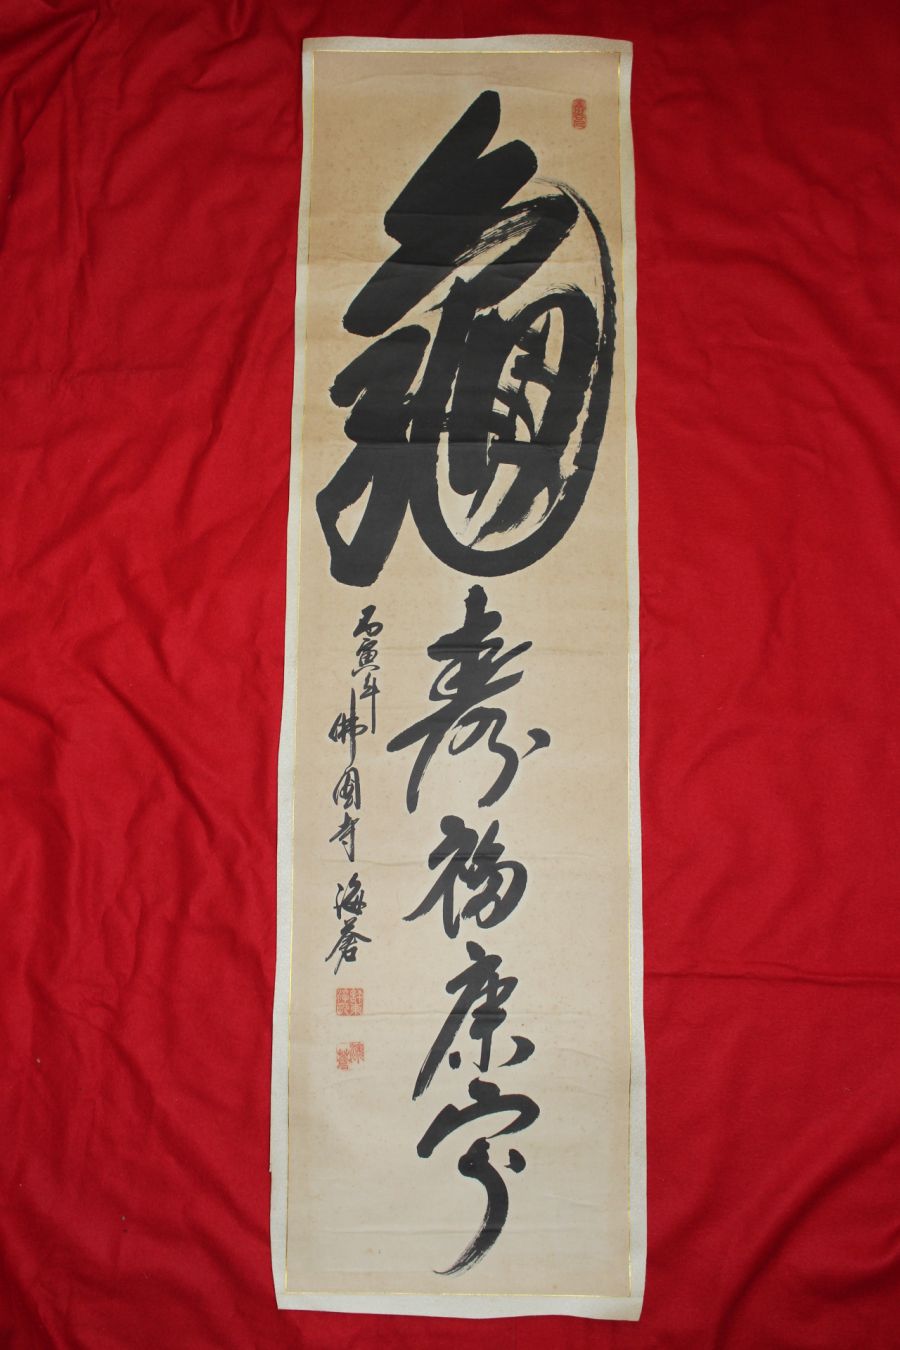 龜
壽福康寧
丙寅年 佛國寺 海蒼